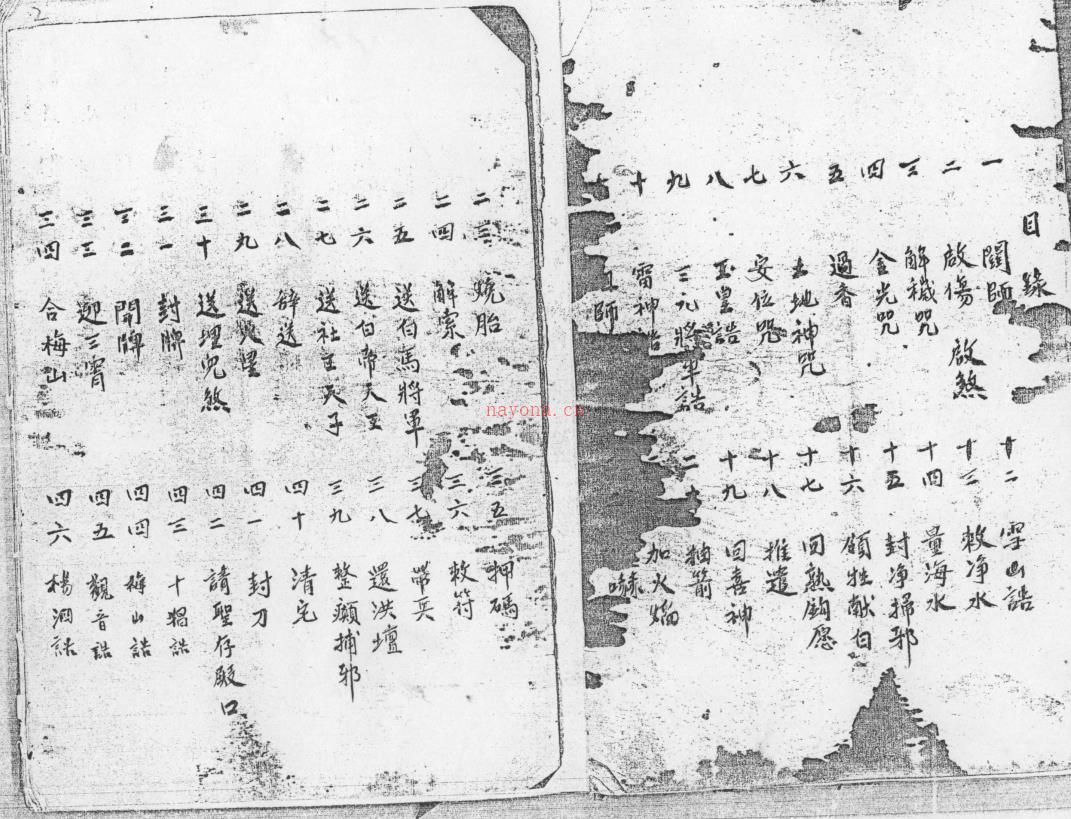 目錄
一 闓師
二 啟傷 啟煞
三 解穢咒
四 金光咒
五 過香
六 土地神咒
七 安位咒
八 玉皇誥
九 三元將軍誥
十 雷神誥
師
十二 雪山誥
十三 敕净水
十四 量海水
十五 封净掃邪
十六 領牲献白
十七 回熟鈎愿
十八 推遣
十九 回喜神
二十 抽箭
加火焰
二三 燒胎
二四 解索
二五 送伯馬將軍
二六 送伯帝天王
二七 送社王天子
二八 辞送
二九 送
三十 送埋児煞
三一 封牌
三二 開牌
三三 迎三霄
三四 合梅山
三五 押碼
三六 敕符
三七 帶兵
三八 還洪壇
三九 整癲捕邪
四十 清宅
四一 封刀
四二 請聖存殿口
四三 十猖誥
四四 梅山誥
四五 觀音誥
四六 楊泗誥
2
nayona.cn